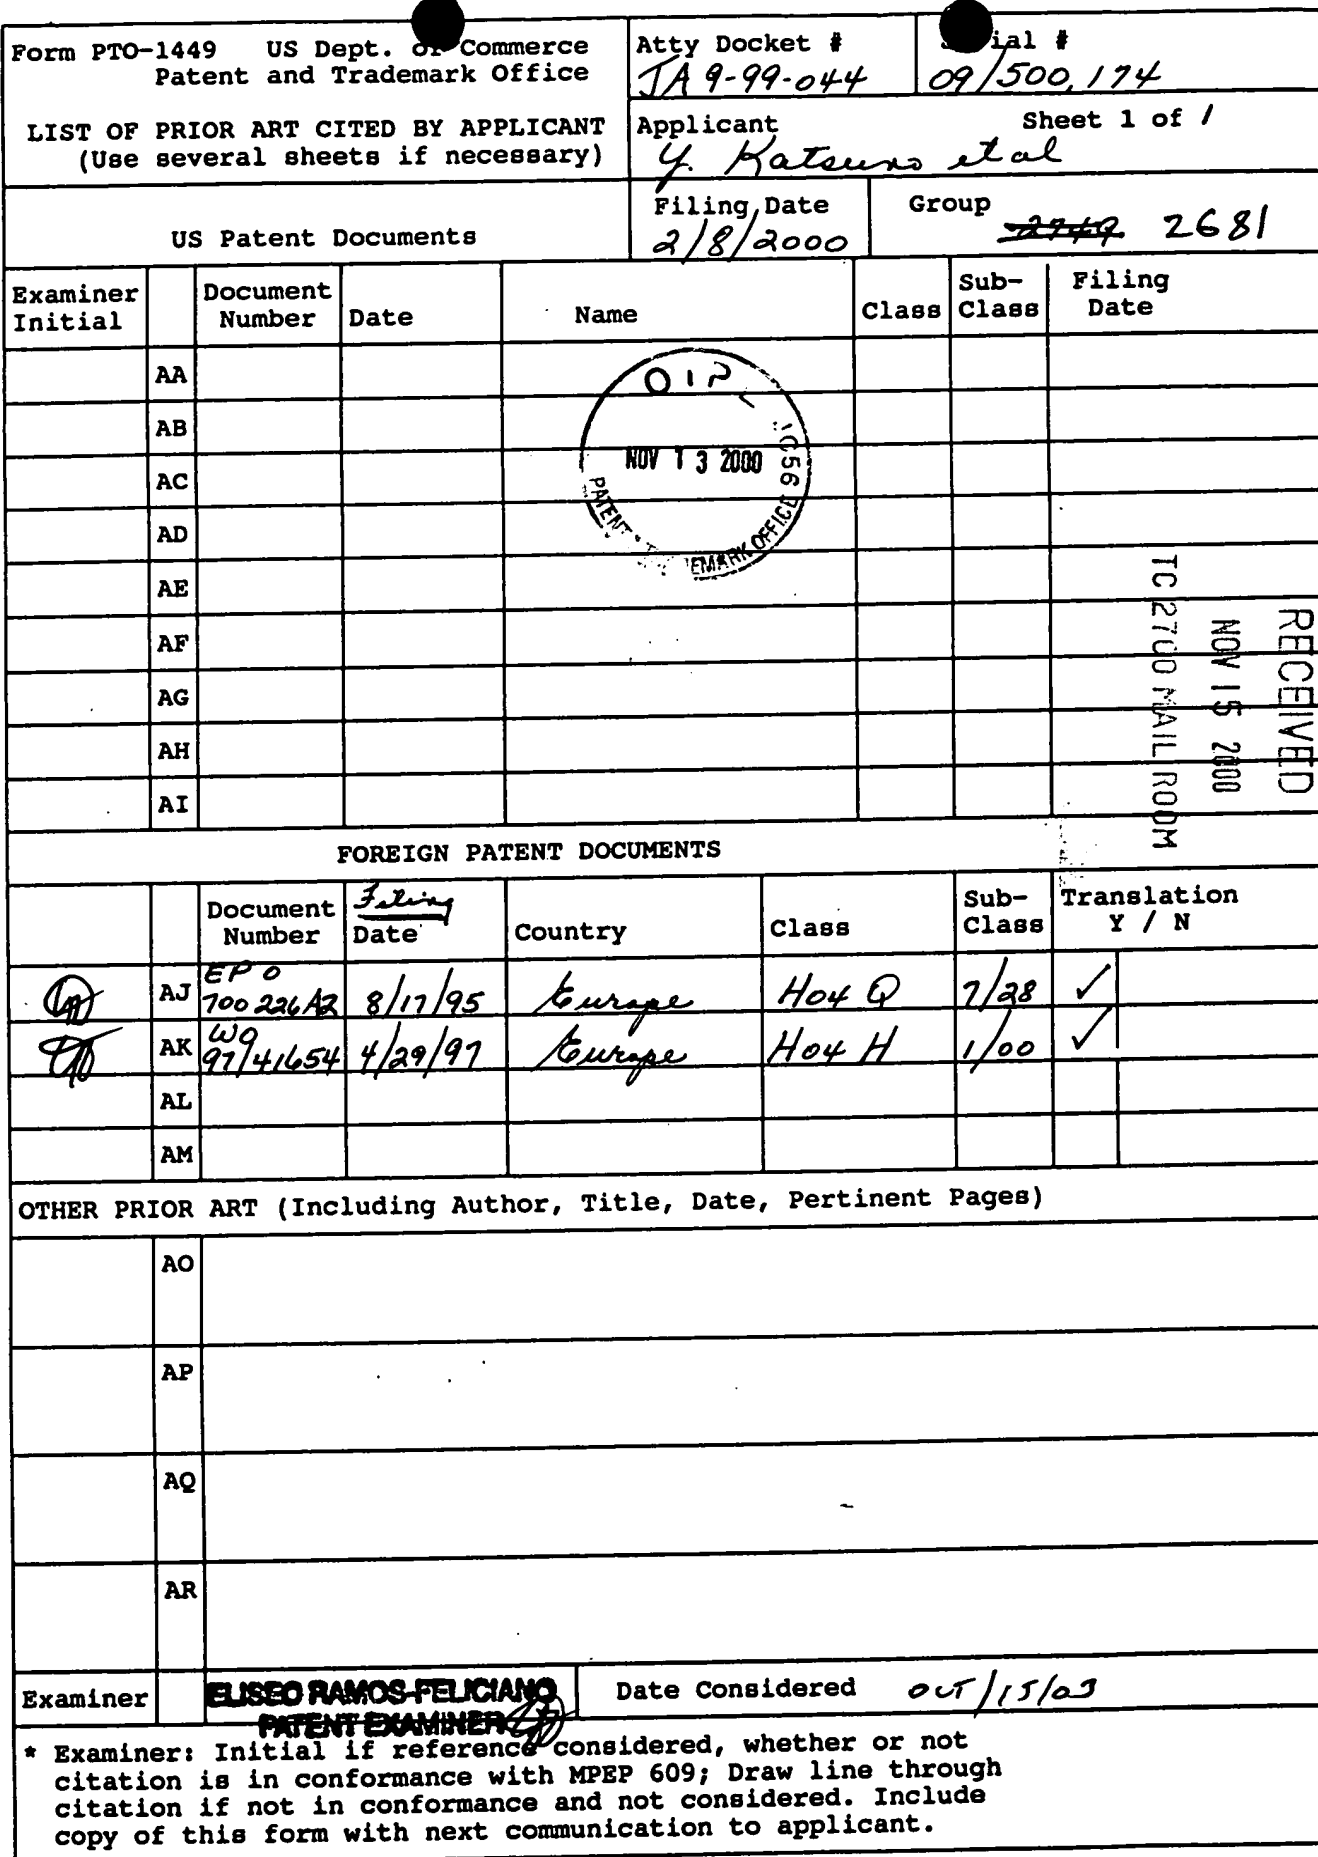 Form PTO-1449 US Dept. of Commerce
Patent and Trademark Office
LIST OF PRIOR ART CITED BY APPLICANT
(Use several sheets if necessary)
Atty Docket #
JA 9-99-044
Serial #
09/500,174
Applicant
Sheet 1 of 1
Y. Katsuno et al
US Patent Documents
Filing Date
2/8/2000
Group
2749 2681
Examiner Initial
Document Number
Date
Name
Class
Sub-Class
Filing Date
AA
AB
AC
AD
AE
AF
AG
AH
AI
OIP
NOV 13 2000
JC56
PATENT EMARK OFFICE
RECEIVED
NOV 15 2000
TC 2700 MAIL ROOM
FOREIGN PATENT DOCUMENTS
Document Number
Filing Date
Country
Class
Sub-Class
Translation Y / N
AJ EPO 700 226 A2 8/17/95 Europe H04 Q 7/28 ✓
AK WO 97/41654 4/29/97 Europe H04 H 1/00 ✓
AL
AM
OTHER PRIOR ART (Including Author, Title, Date, Pertinent Pages)
AO
AP
AQ
AR
Examiner
ELISEO RAMOS-FELICIANO
PATENT EXAMINER
Date Considered OCT/15/03
* Examiner: Initial if reference considered, whether or not
citation is in conformance with MPEP 609; Draw line through
citation if not in conformance and not considered. Include
copy of this form with next communication to applicant.